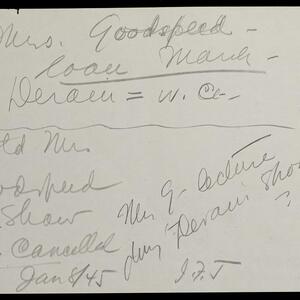 Mrs. Goodspeed -
loan March -
Derain = W. C-
td Mrs
odspeed
Show
Cancelled
Jan 8/45
Mrs G- lecture
"Derain Show"